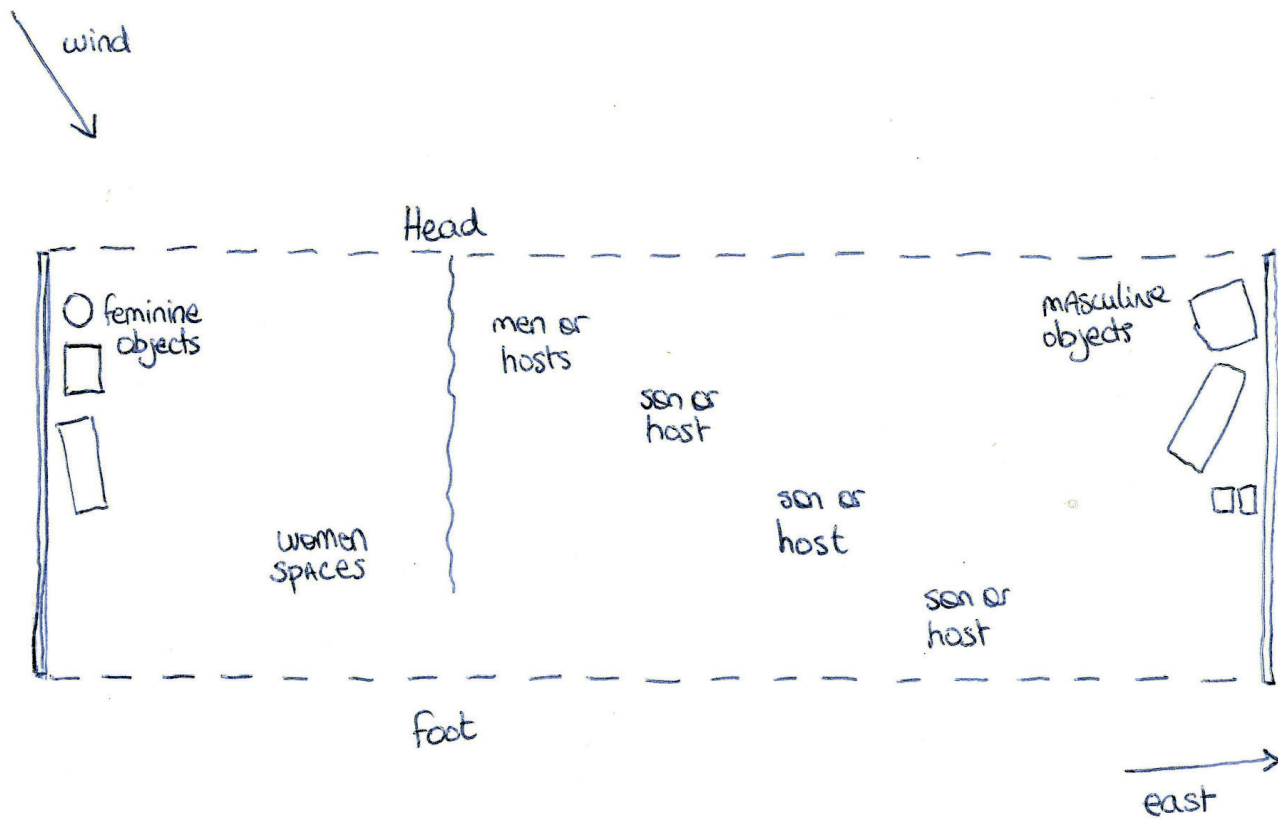 wind
Head
feminine
objects
men or
hosts
mAsculine
objects
son or
host
son or
host
women
spAces
son or
host
foot
east